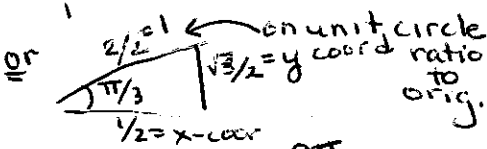 or 2/2=1 on unit circle
√3/2 = y coord ratio
π/3 to
orig.
1/2 = x-coor